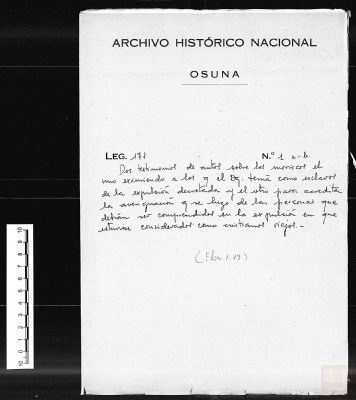 ARCHIVO HISTÓRICO NACIONAL
OSUNA
LEG. 171 N.º 1 a-b
Dos testimonios de autos sobre los moriscos el
uno eximiendo a los q el Dq. tenía como esclavos
de la expulsión decretada y el otro para acreditar
la averiguación q se hizo de las personas que
debían ser comprendidas en la expulsión en que
estuvieron considerados como cristianos viejos.-
10 0 1 2 3 4 5 6 7 8 9 10